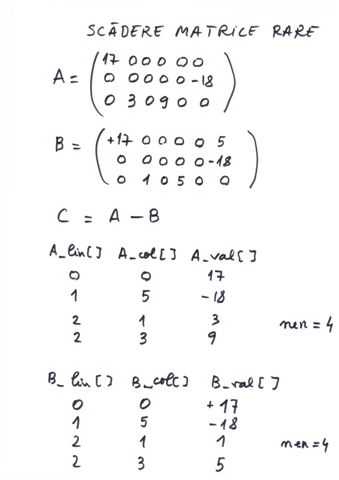 SCĂDERE MATRICE RARE
17 0 0 0 0 0
A = 0 0 0 0 0 -18
0 3 0 9 0 0
+17 0 0 0 0 5
B = 0 0 0 0 0 -18
0 1 0 5 0 0
C = A - B
A_lin[] A_col[] A_val[]
0 0 17
1 5 -18
2 1 3
2 3 9 nen = 4
B_lin[] B_col[] B_val[]
0 0 +17
1 5 -18
2 1 1 nen = 4
2 3 5